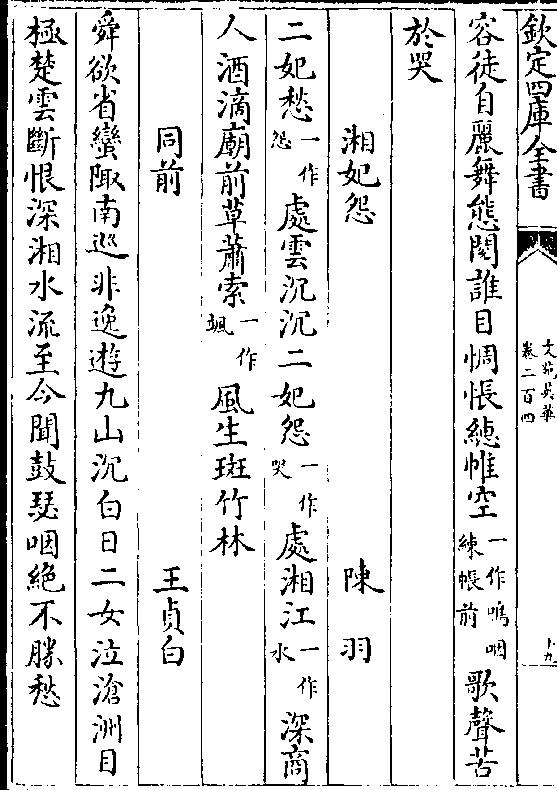 欽定四庫全書
文苑英華
卷二百四
十九
容徒自麗舞態閱誰目惆悵繐帷空一作嗚咽練帳前歌聲苦
於哭
湘妃怨 陳羽
二妃愁一作怨處雲沉沉二妃怨一作哭處湘江一作水深商
人酒滴廟前草蕭索一作颯風生斑竹林
同前 王貞白
舜欲省蠻陬南廵非逸遊九山沉白日二女泣滄洲目
極楚雲斷恨深湘水流至今聞鼓瑟咽絶不勝愁